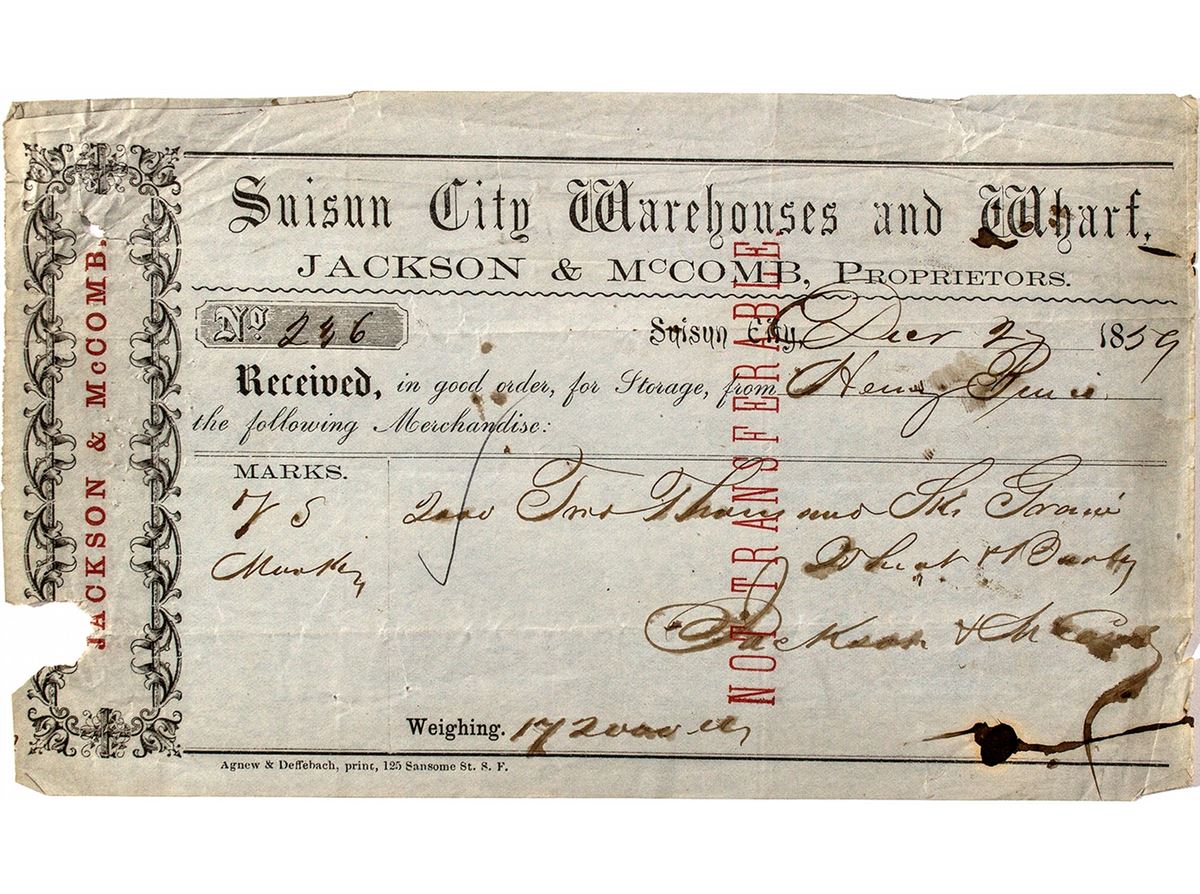 Suisun City Warehouses and Wharf,
JACKSON & McCOMB, PROPRIETORS.
JACKSON & McCOMB.
No. 246
Suisun City, Decr 27 1859
Received, in good order, for Storage, from Henry
the following Merchandise:
NOT TRANSFERABLE
MARKS.
2000 Two Thousand Sks Grain
Wheat & Barly
Jackson & McComb
Weighing. 172000 lbs
Agnew & Deffebach, print, 125 Sansome St. S. F.